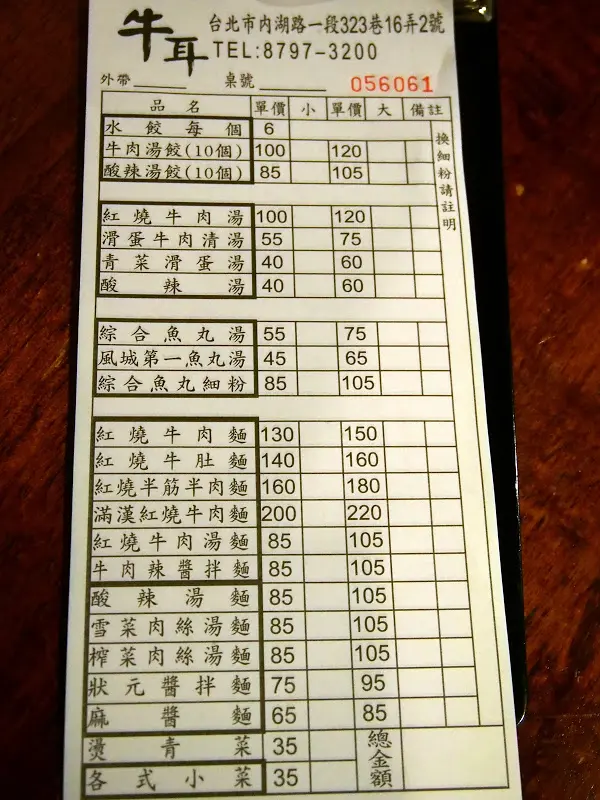 牛耳
台北市內湖路一段323巷16弄2號
TEL:8797-3200
外帶 桌號 056061
品名 單價 小 單價 大 備註
水餃每個 6
牛肉湯餃(10個) 100 120
酸辣湯餃(10個) 85 105
換細粉請註明
紅燒牛肉湯 100 120
滑蛋牛肉清湯 55 75
青菜滑蛋湯 40 60
酸辣湯 40 60
綜合魚丸湯 55 75
風城第一魚丸湯 45 65
綜合魚丸細粉 85 105
紅燒牛肉麵 130 150
紅燒牛肚麵 140 160
紅燒半筋半肉麵 160 180
滿漢紅燒牛肉麵 200 220
紅燒牛肉湯麵 85 105
牛肉辣醬拌麵 85 105
酸辣湯麵 85 105
雪菜肉絲湯麵 85 105
榨菜肉絲湯麵 85 105
狀元醬拌麵 75 95
麻醬麵 65 85
燙青菜 35
各式小菜 35
總金額